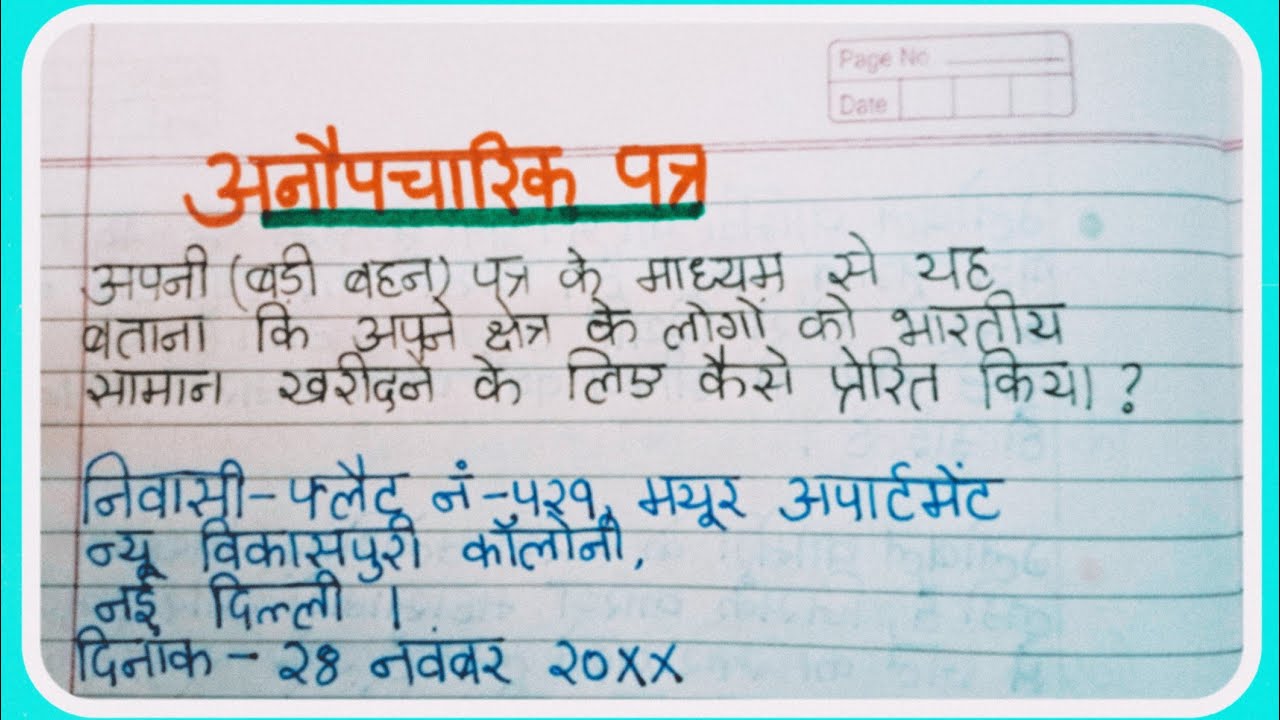 Page No
Date
अनौपचारिक पत्र
अपनी (बड़ी बहन) पत्र के माध्यम से यह
बताना कि अपने क्षेत्र के लोगों को भारतीय
सामान खरीदने के लिए कैसे प्रेरित किया?
निवासी-फ्लैट नं-५२१, मयूर अपार्टमेंट
न्यू विकासपुरी कॉलोनी,
नई दिल्ली ।
दिनांक - २४ नवंबर २०XX